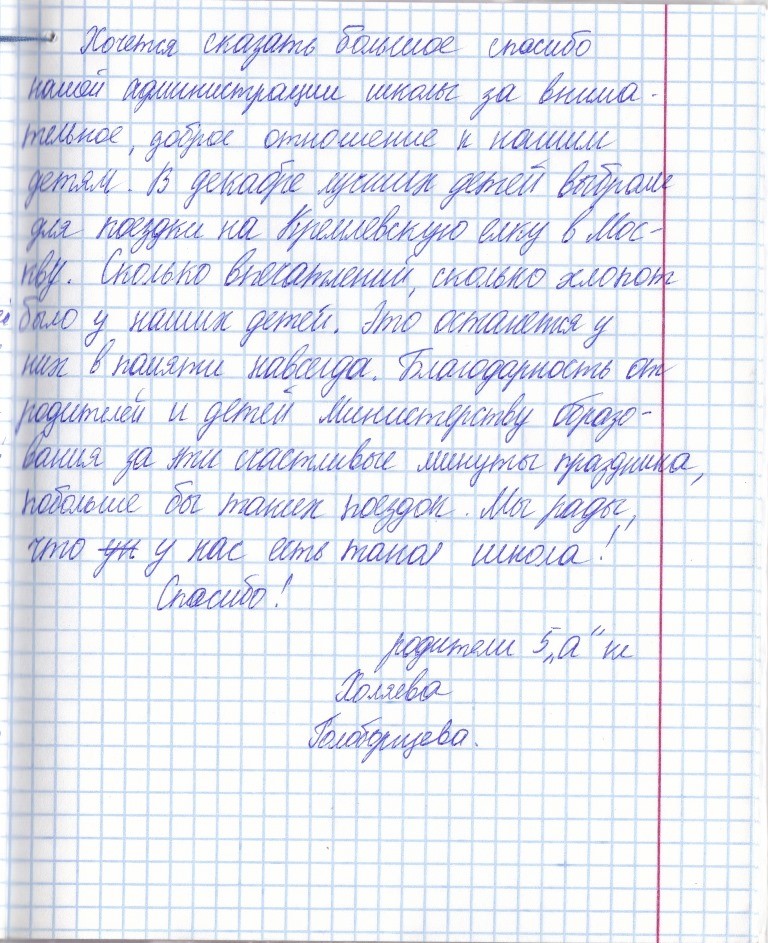 Хочется сказать большое спасибо
нашей администрации школы за внима-
тельное, доброе отношение к нашим
детям. В декабре лучших детей выбрали
для поездки на Кремлевскую елку в Мос-
кву. Сколько впечатлений, сколько хлопот
было у наших детей. Это останется у
них в памяти навсегда. Благодарность от
родителей и детей Министерству образо-
вания за эти счастливые минуты праздника,
побольше бы таких поездок. Мы рады,
что у нас есть такая школа!
Спасибо!
родители 5 „а“ кл
Холяева